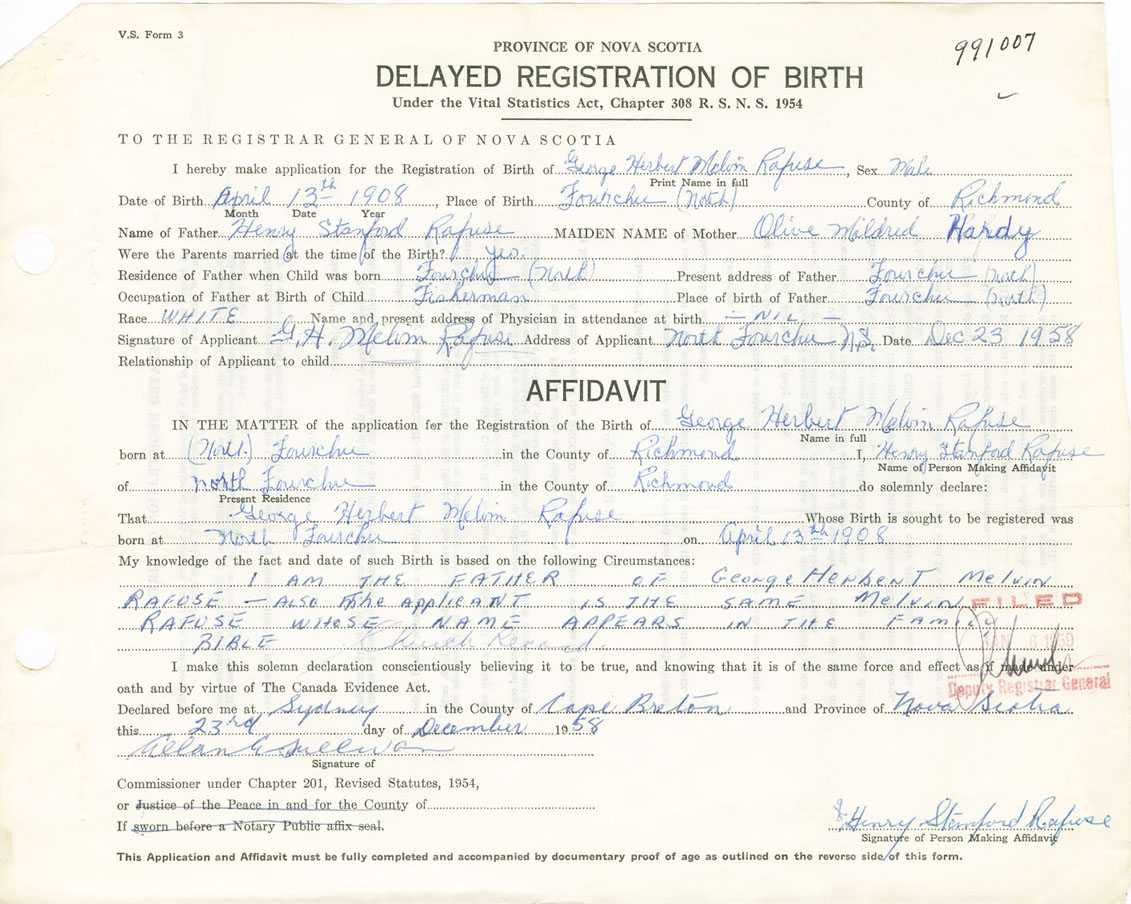 V.S. Form 3
991007
PROVINCE OF NOVA SCOTIA
DELAYED REGISTRATION OF BIRTH
Under the Vital Statistics Act, Chapter 308 R. S. N. S. 1954
TO THE REGISTRAR GENERAL OF NOVA SCOTIA
I hereby make application for the Registration of Birth of George Herbert Melvin Rafuse, Sex Male
Print Name in full
Date of Birth April 13th 1908, Place of Birth Fourchu (North) County of Richmond
Month Date Year
Name of Father Henry Stanford Rafuse MAIDEN NAME of Mother Olive Mildred Hardy
Were the Parents married at the time of the Birth? yes.
Residence of Father when Child was born Fourchu (North) Present address of Father Fourchu (North)
Occupation of Father at Birth of Child Fisherman Place of birth of Father Fourchu (North)
Race WHITE Name and present address of Physician in attendance at birth - NIL -
Signature of Applicant G. H. Melvin Rafuse Address of Applicant North Fourchu N.S. Date Dec 23 1958
Relationship of Applicant to child
AFFIDAVIT
IN THE MATTER of the application for the Registration of the Birth of George Herbert Melvin Rafuse
Name in full
born at (North) Fourchu in the County of Richmond I, Henry Stanford Rafuse
Name of Person Making Affidavit
of North Fourchu in the County of Richmond do solemnly declare:
Present Residence
That George Herbert Melvin Rafuse Whose Birth is sought to be registered was
born at North Fourchu on April 13th 1908
My knowledge of the fact and date of such Birth is based on the following Circumstances:
I AM THE FATHER OF GEORGE HERBERT MELVIN
RAFUSE - ALSO THE APPLICANT IS THE SAME MELVIN
RAFUSE WHOSE NAME APPEARS IN THE FAMILY
BIBLE Church Record.
FILED
JAN 6 1959
Deputy Registrar General
I make this solemn declaration conscientiously believing it to be true, and knowing that it is of the same force and effect as if made under
oath and by virtue of The Canada Evidence Act.
Declared before me at Sydney in the County of Cape Breton and Province of Nova Scotia
this 23rd day of December 1958
Allan E Sullivan
Signature of
Commissioner under Chapter 201, Revised Statutes, 1954,
or Justice of the Peace in and for the County of
If sworn before a Notary Public affix seal.
Henry Stanford Rafuse
Signature of Person Making Affidavit
This Application and Affidavit must be fully completed and accompanied by documentary proof of age as outlined on the reverse side of this form.